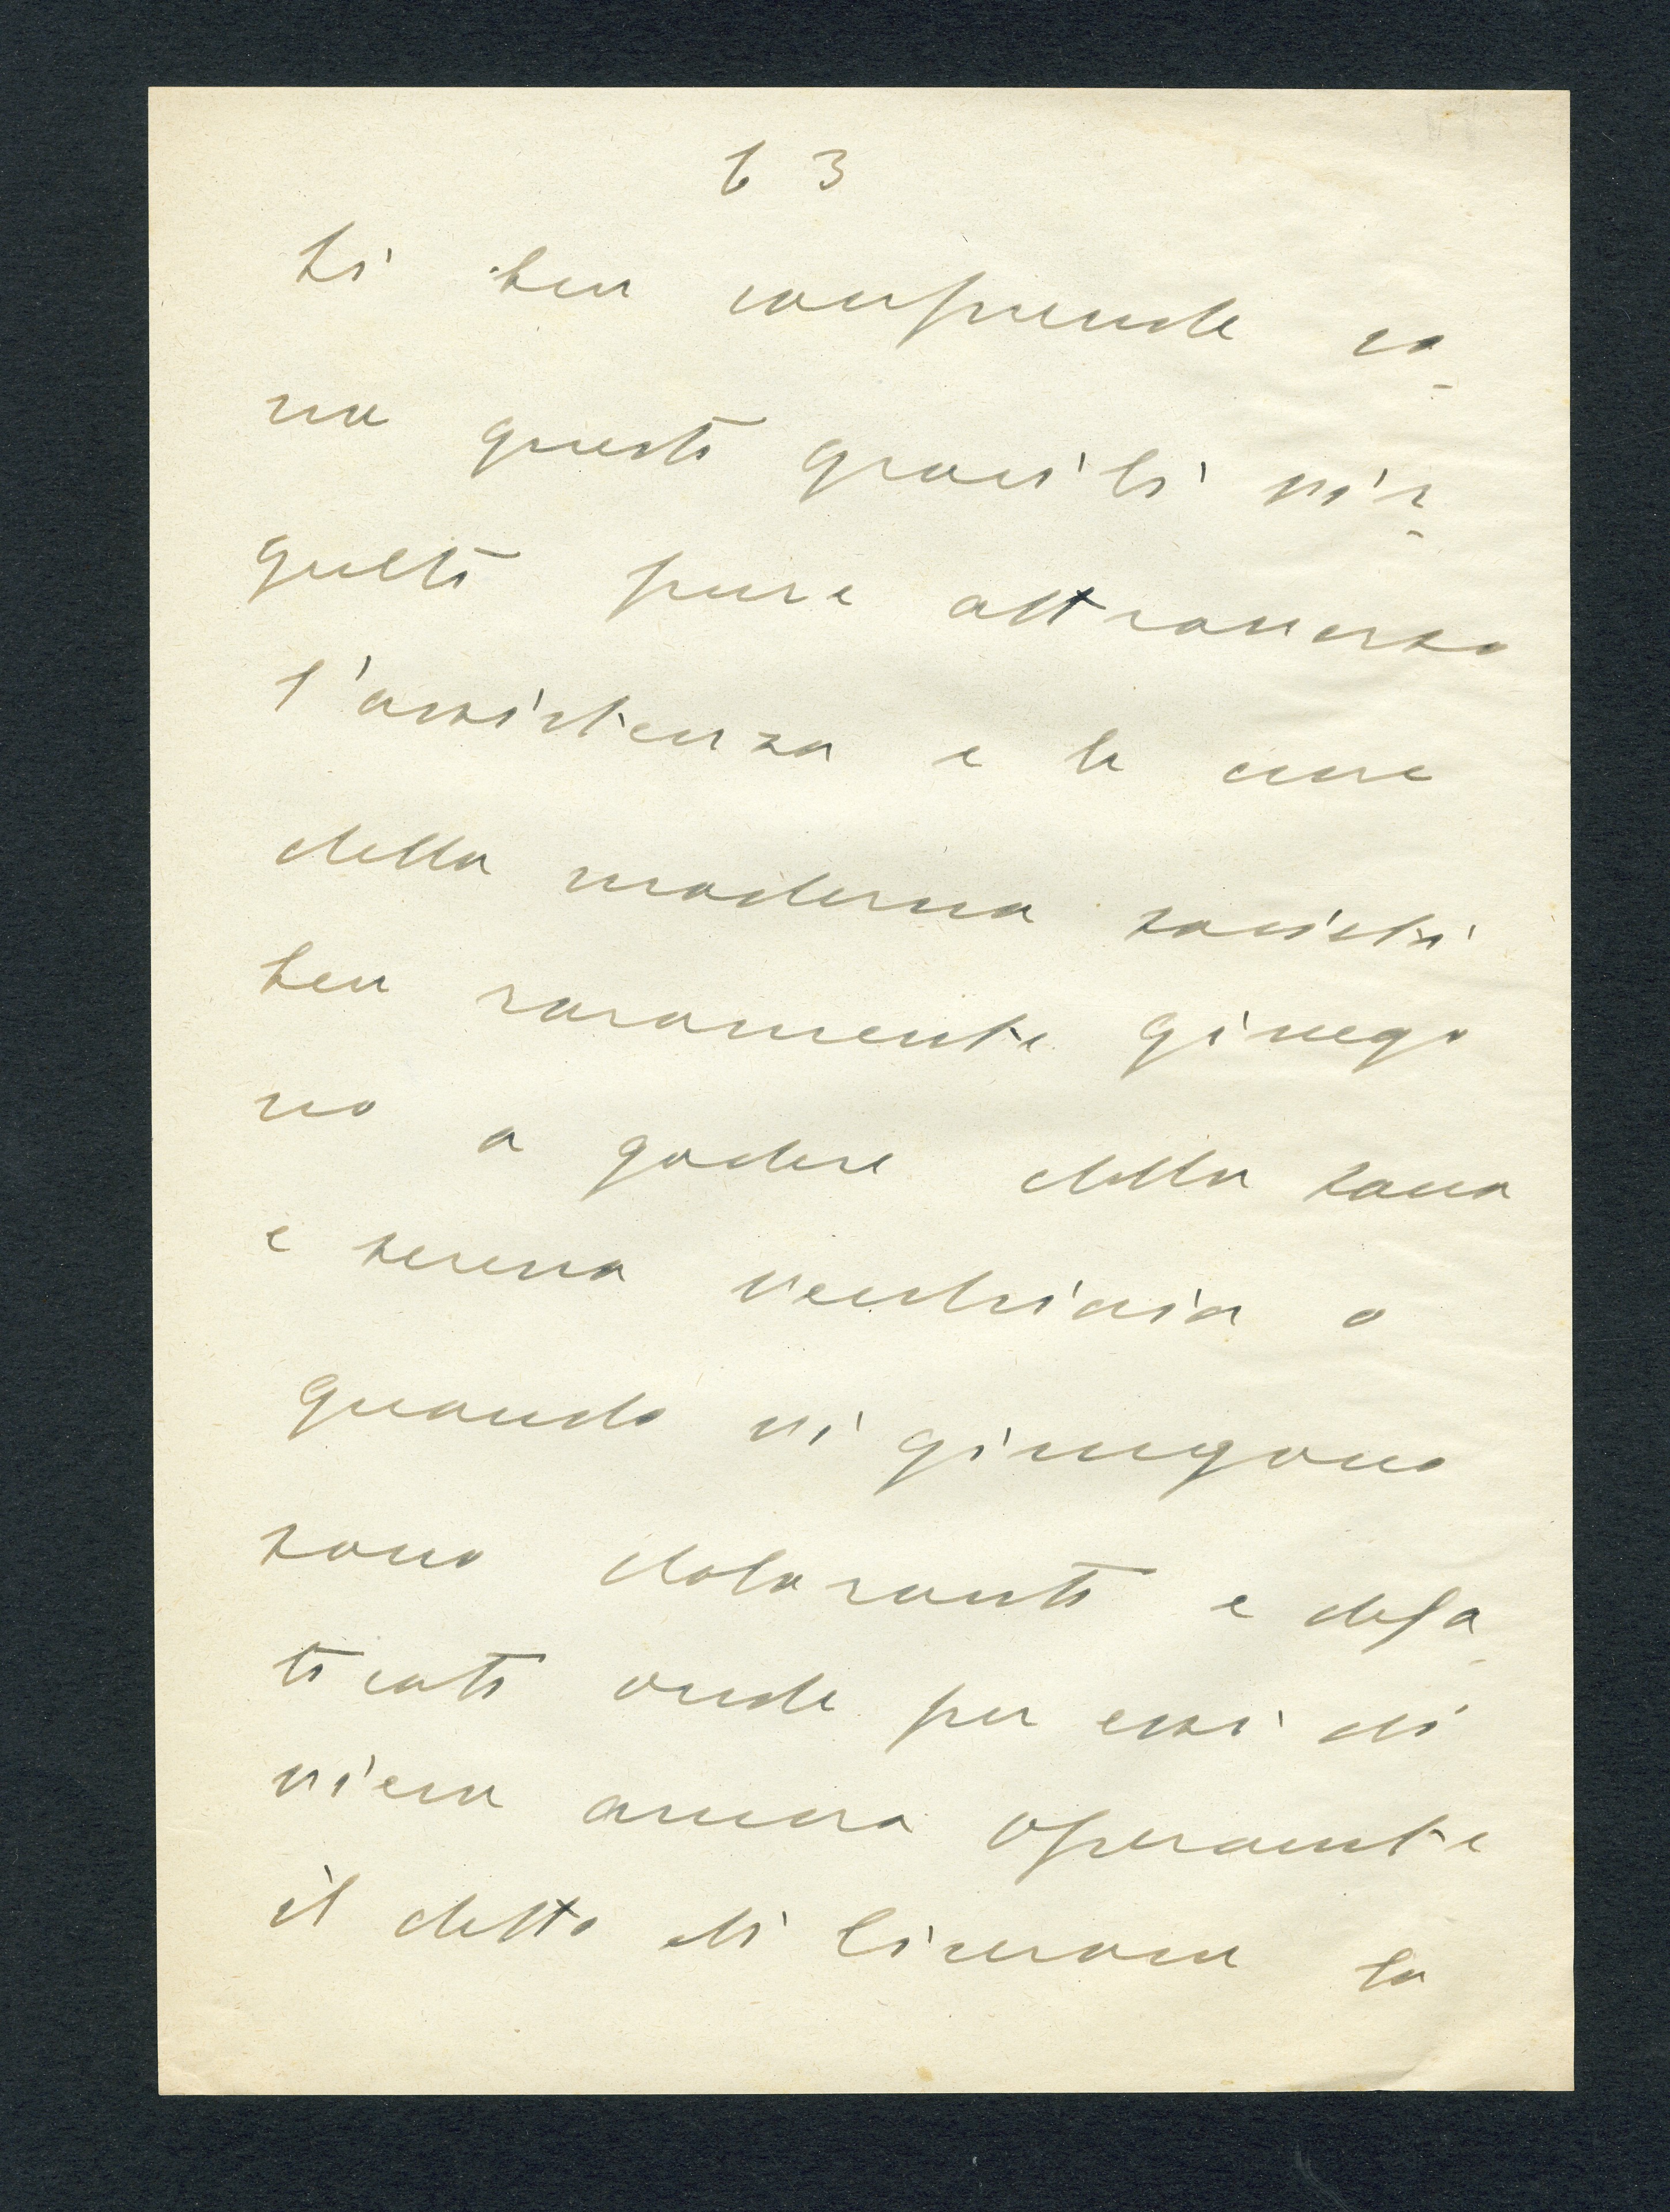 63
Si ben comprende co-
me questi gracili vir-
gulti pure attraverso
l'assistenza e le cure
della moderna società
ben raramente giungo
no a godere della sana
e serena vecchiaia o
quando vi giungono
sono doloranti e defa-
ticati onde per essi di
viene ancora operante
il detto di Cicerone la